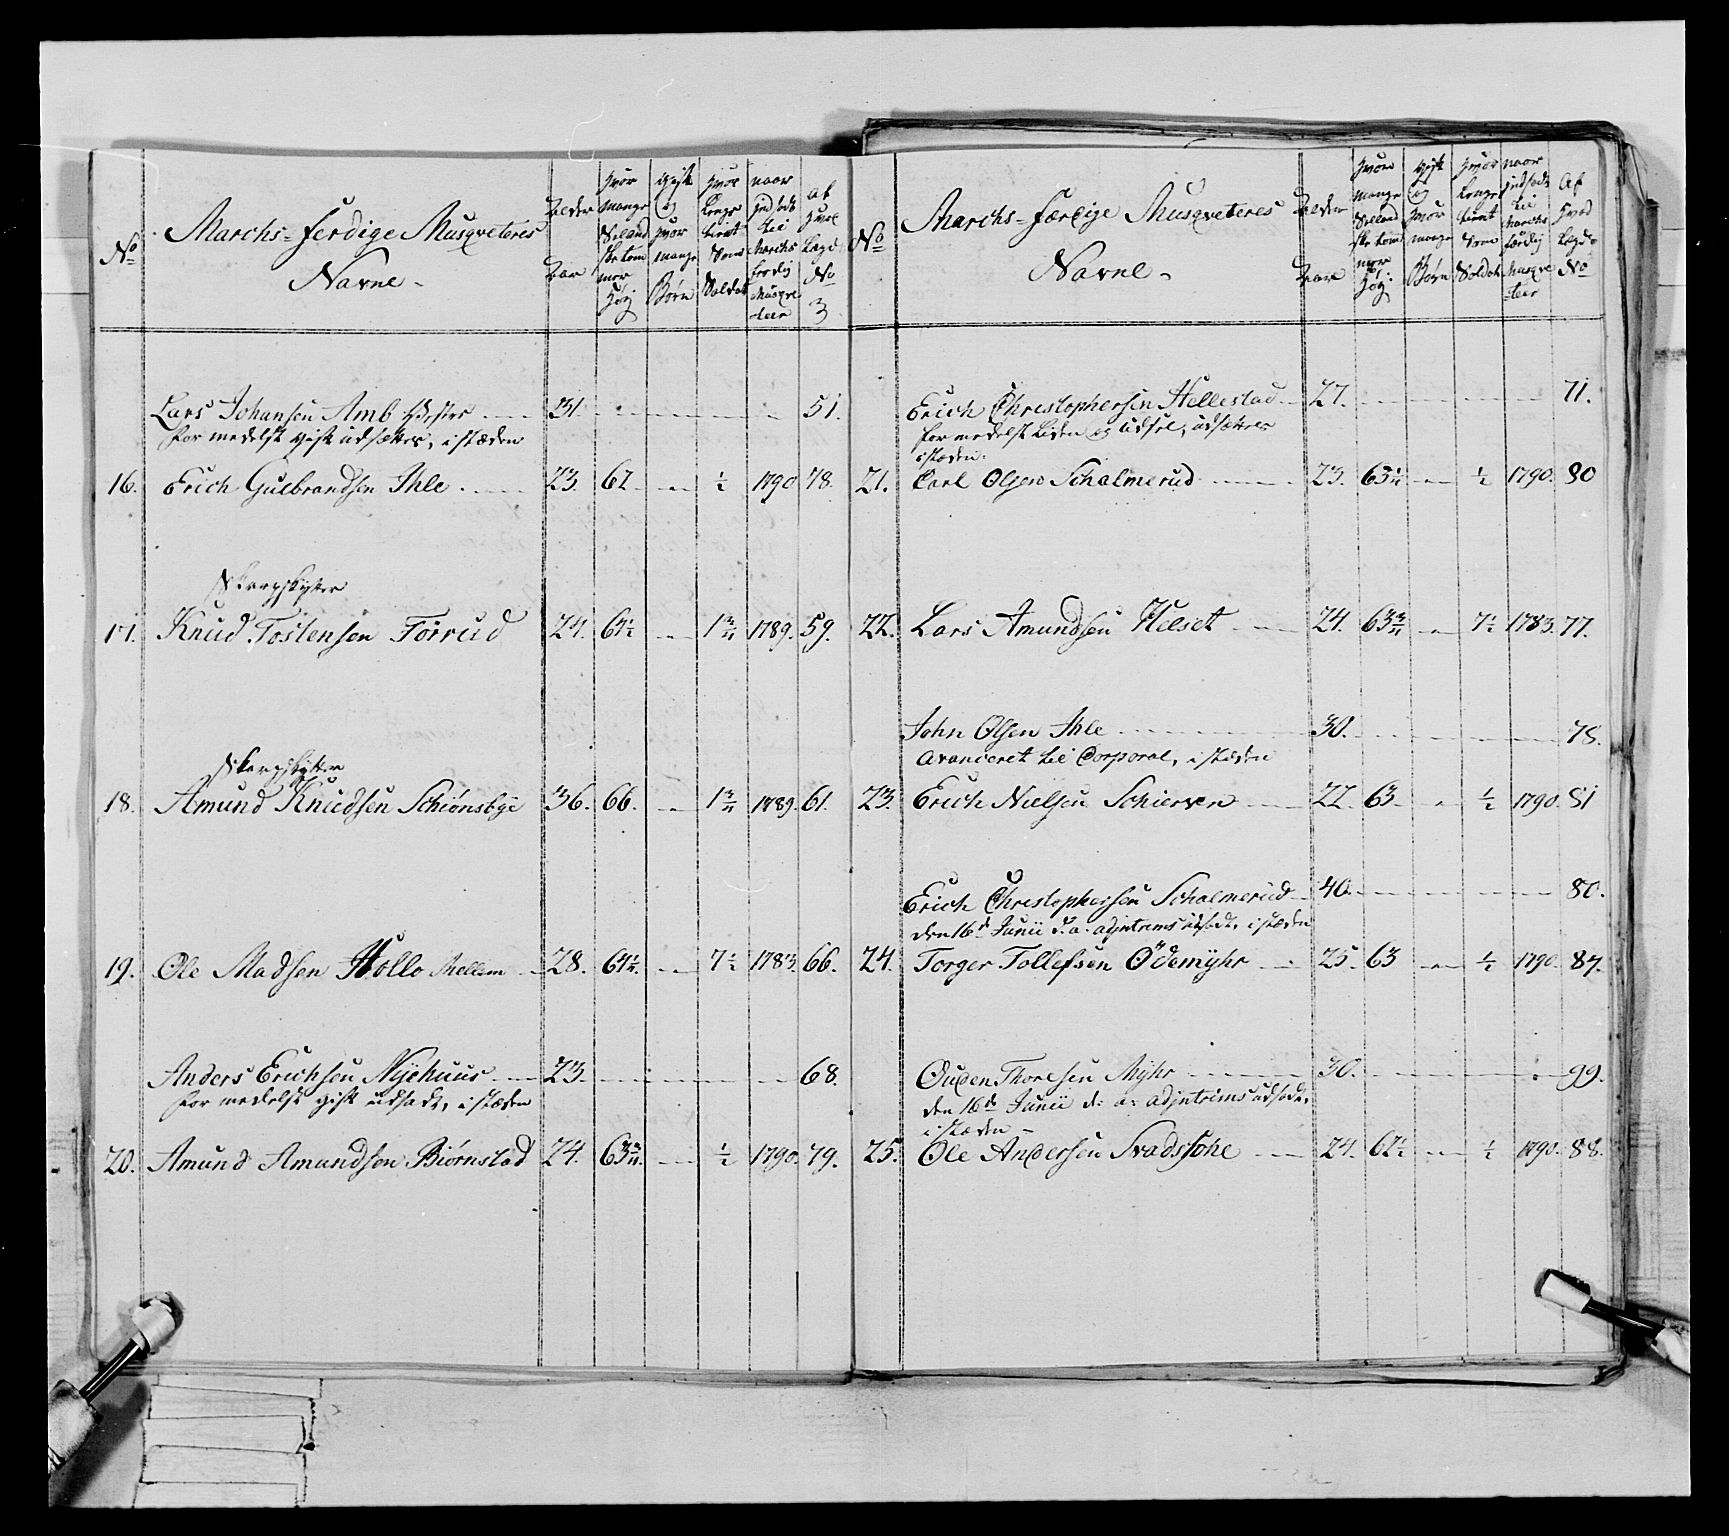 No
Marchs-ferdige Musqveteres
Navne -
Alder
Aar
Hvor mange Siælandske tommer Høj
Gift og Hvor mange Børn
Hvor Længe tient Som Soldat
naar Indsadt til Marchs ferdig Musqveteer
Af Hvad Lægd No
3
Lars Johansen Amb 31. 51.
formedelst gift udsættes, i stæden
16. Erich Gulbrandsen Ihle 23. 62 ½ 1790 78.
Skarpskytter
17. Knud Tostensen Förrud 24. 64½ 1¾ 1789. 59.
Skarpskytter
18. Amund Knudsen Schiønsbye 36. 66. 1¾ 1789. 61.
19. Ole Madsen Hollo Mellem 28. 64¼ 7½ 1783. 66.
Anders Erichsen Nyehuus 23. 68.
formedelst gift udsadt, i stæden
20. Amund Amundsen Biørnstad 24. 63¾ ½ 1790. 79.
No
Marchs-færdige Musqveteres
Navne -
Alder
Aar
Hvor mange Siælandske tommer Høj
Gift og Hvor mange Børn
Hvor Længe tient Som Soldat
naar Indsadt til Marchs færdig Musqveteer
Af Hvad Lægds No
Erich Christophersen Hellestad 27. 71.
formedelst Liden og Udsel, udsættes
i stæden.
21. Carl Olsen Schalmerud 23. 63¼ ½ 1790. 80
22. Lars Amundsen Helset 24. 63¾ 7½ 1783. 77.
John Olsen Ihle 30. 78.
avanceret til Corporal, i stæden
23. Erich Nielsen Schierven 22. 63 ½ 1790. 81
Erich Christophersen Schalmerud 40. 80.
den 16d Junii d. a. adjntrims udsadt, i stæden
24. Torger Tollefsen Ödemyhr 25. 63 ½ 1790. 87.
Ouden Thoresen Myhr 30. 99.
den 16d Junii d: a: adjntrims udsadt,
i stæden -
25. Ole Andersen Svadssohe 24. 62½ ½ 1790. 88.